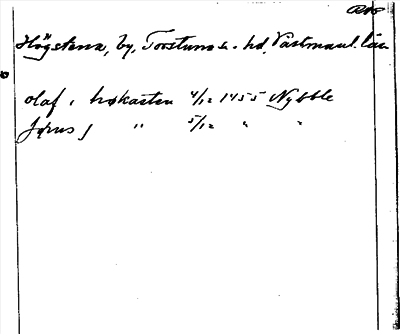 Högstena, by, Torstuna s. o. hd, Västmanl. län
olaf i høkasten 4/12 1455 Nybble
Jønus j " 5/12 " "